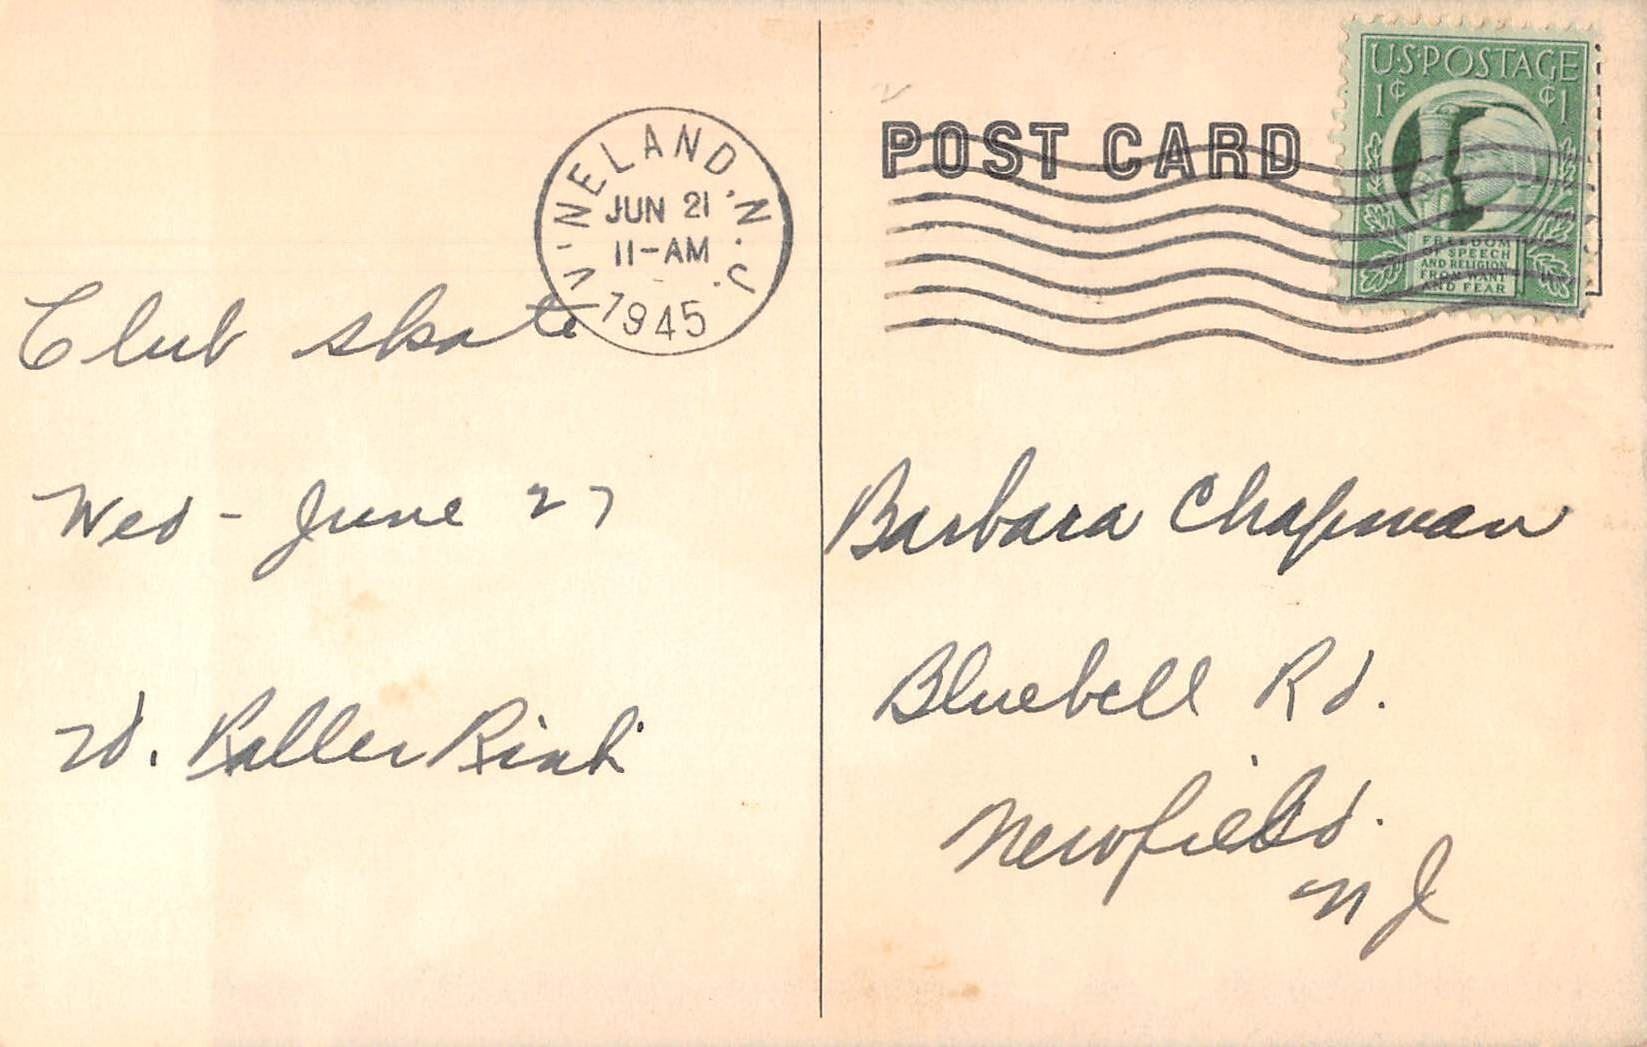 VINELAND, N.J.
JUN 21
11-AM
1945
POST CARD
U.S.POSTAGE
1¢ ¢1
FREEDOM
OF SPEECH
AND RELIGION,
FROM WANT
AND FEAR
Club skate
Wed - June 27
Roller Rink
Barbara Chapman
Bluebell Rd.
Newfield.
N J